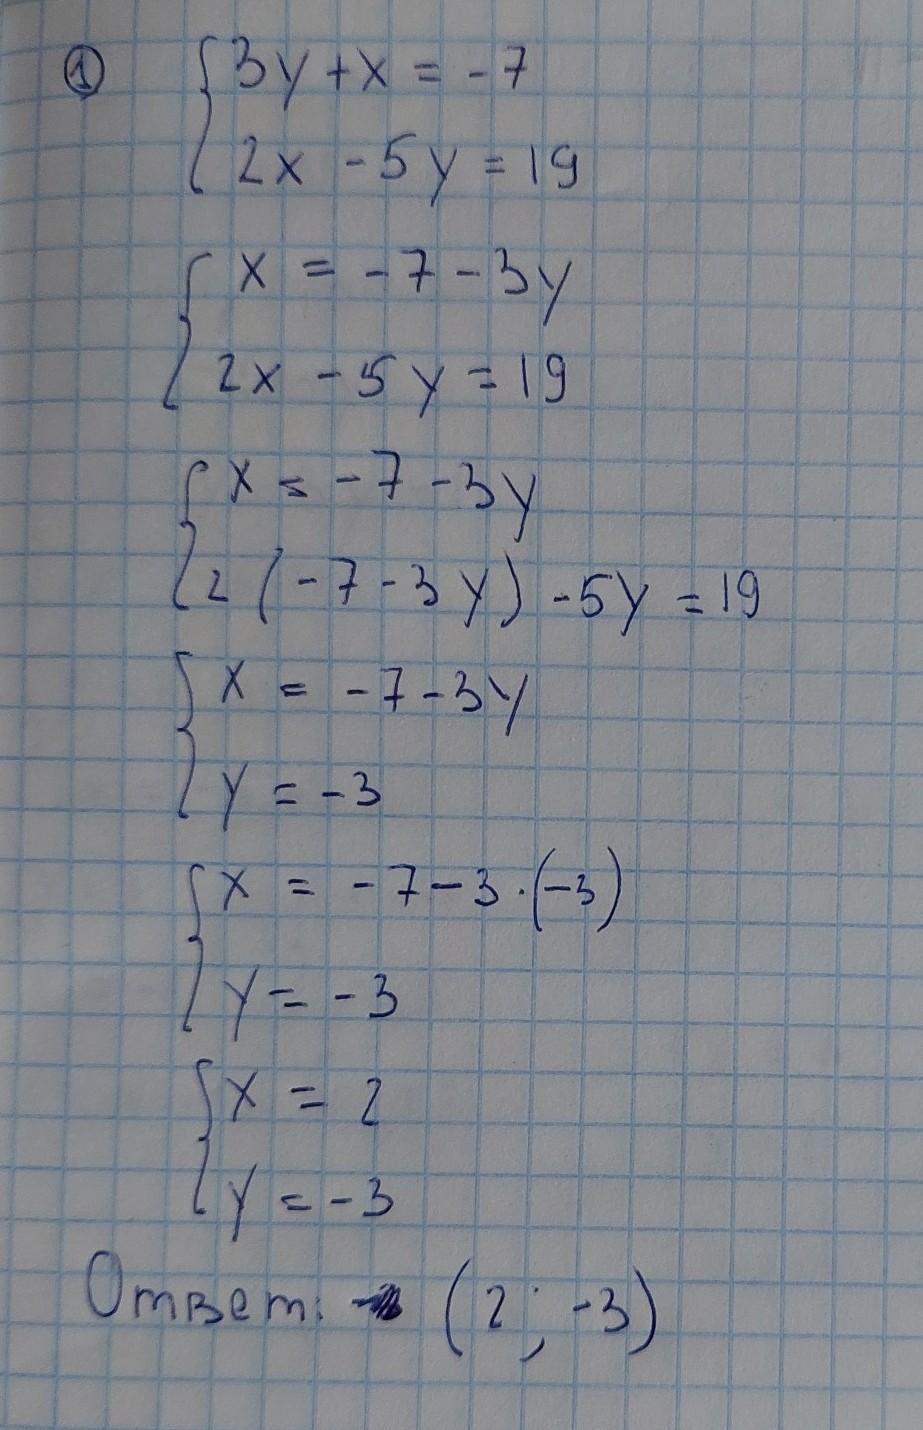 ① 3y + x = -7
2x - 5y = 19
x = -7 - 3y
2x - 5y = 19
x = -7 - 3y
2(-7 - 3y) - 5y = 19
x = -7 - 3y
y = -3
x = -7 - 3·(-3)
y = -3
x = 2
y = -3
Ответ: (2; -3)